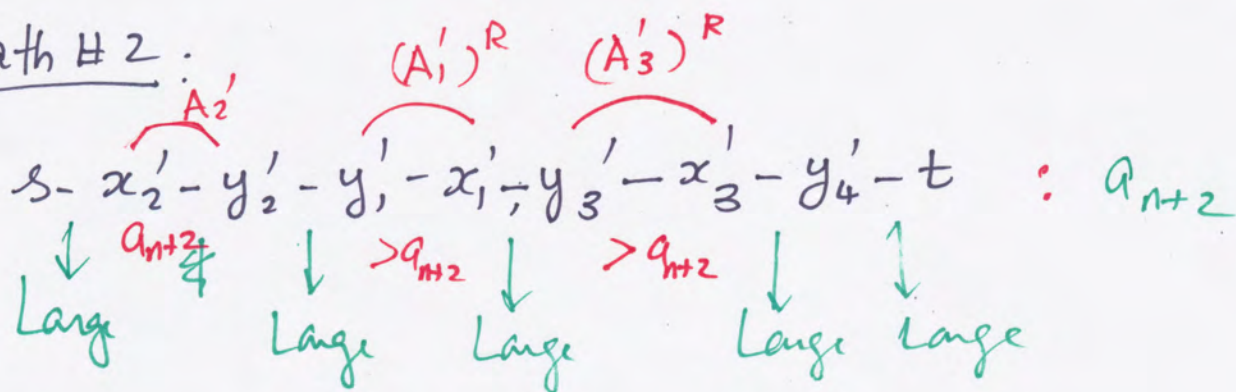 ath # 2 :
A2' (A1')^R (A3')^R
s - x2' - y2' - y1' - x1' - y3' - x3' - y4' - t : a_{n+2}
a_{n+2} >a_{n+2} >a_{n+2}
Large Large Large Large Large